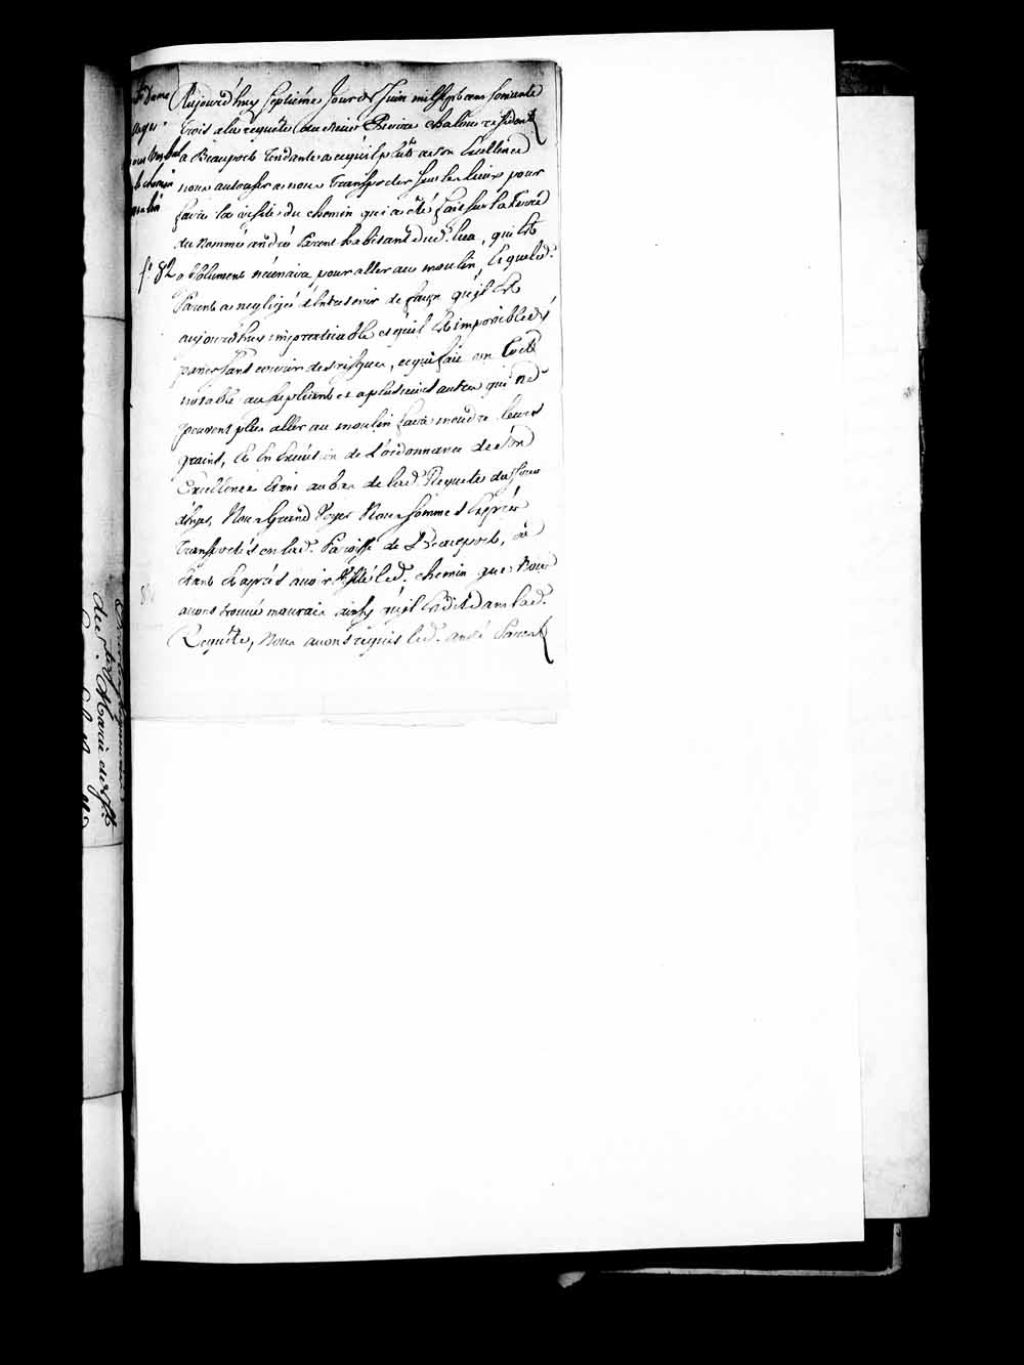 Aujourd'huy septieme Jour de Juin mil sept cens soixante
trois a la requête du sieur Pierre chalou résident
a Beauport tendante a ce qu'il plût a son Excellence
nous autoriser a nous transporter sur les lieux pour
faire la visite du chemin qui a été fait sur la terre
du nommé andré Parent habitant dud. lieu, qui est
absolument nécessaire pour aller au moulin, lequel d.
Parent a negligé d'entretenir de façon qu'il est
aujourd'huy impraticable et qu'il est impossible d'y
passer sans courir des risques, ce qui fait un tort
notable au supliant et a plusieurs autres qui ne
peuvent plus aller au moulin faire moudre leurs
grains, et en Execution de l'ordonnance de son
Excellence Etant au bas de lad. Requete du
Nous Grand Voyer Nous sommes Exprès
transportés en lad. Paroisse de Beauport, où
étant et après avoir visité led. chemin que Nous
avons trouvé mauvais ainsy qu'il est dit dans lad.
Requête, Nous avons requis led. andré Parent
chemin
f.° 82
Marie